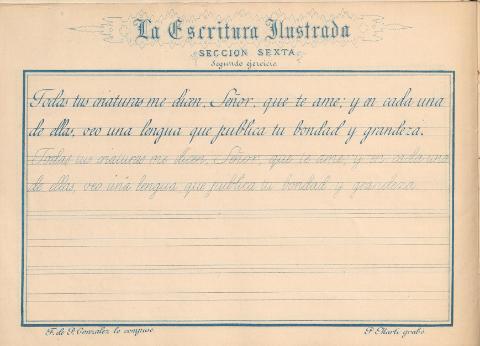 La Escritura Ilustrada
SECCION SEXTA
Segundo Ejercicio
Todas tus criaturas me dicen, Señor, que te ame; y en cada una
de ellas, veo una lengua que publica tu bondad y grandeza.
Todas tus criaturas me dicen, Señor, que te ame; y en cada una
de ellas, veo una lengua que publica tu bondad y grandeza.
F. de P. Gonzalez lo compuso
P. Marti grabó